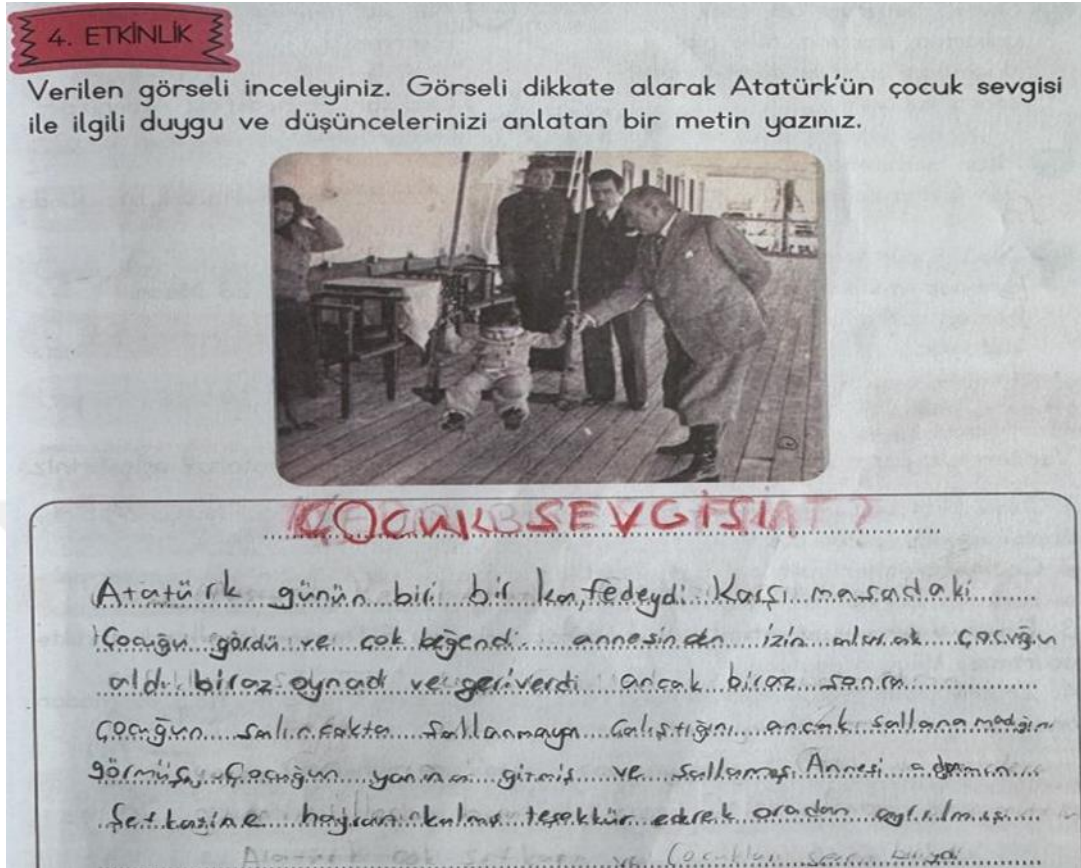 4. ETKİNLİK
Verilen görseli inceleyiniz. Görseli dikkate alarak Atatürk'ün çocuk sevgisi
ile ilgili duygu ve düşüncelerinizi anlatan bir metin yazınız.
ÇOCUK SEVGİSİ
Atatürk günün biri bir kafedeydi. Karşı masadaki
Çocuğu gördü ve çok beğendi. annesinden izin alarak çocuğu
aldı biraz oynadı ve geri verdi ancak biraz sonra
Çocuğun salıncakta sallanmaya çalıştığını ancak sallanamadığını
görmüş, Çocuğun yanına girmiş ve sallamış. Annesi adamın
hayran kalmış teşekkür ederek oradan ayrılmış.